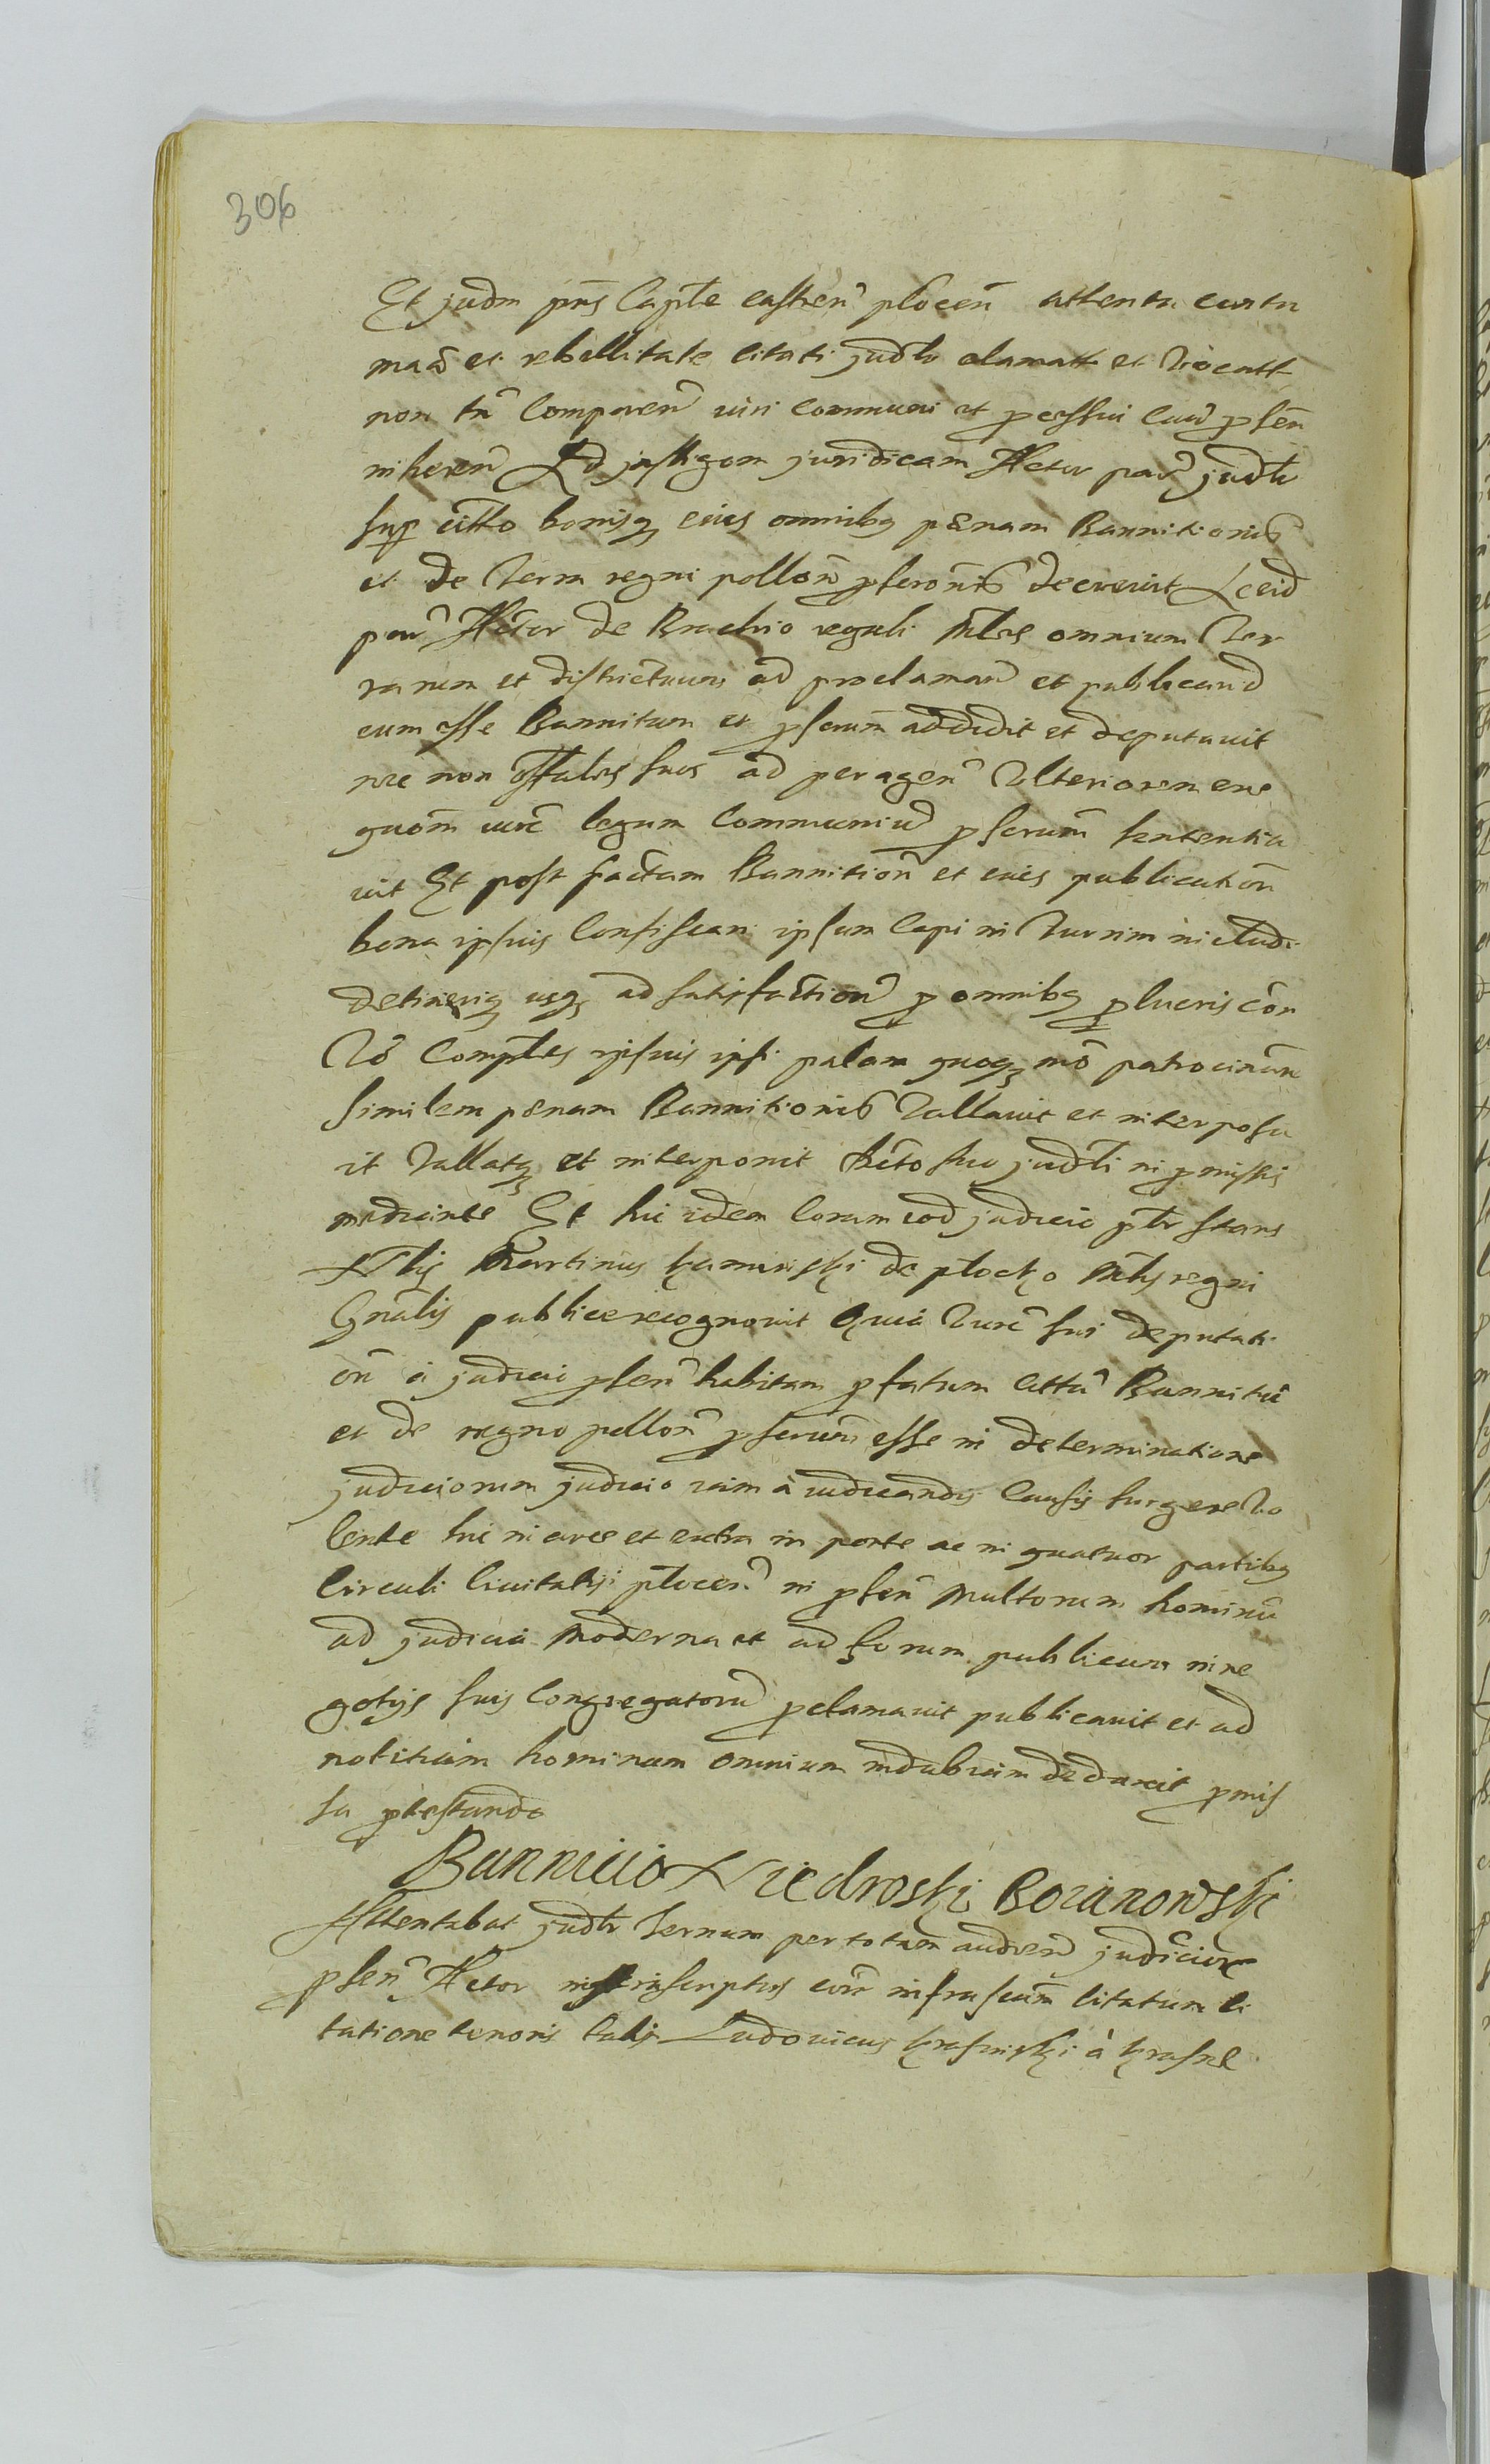 306
Et judm pns Capte castren plocen attenta contu
macia et rebellitate citati judlr clamatt et vocatt
non tn Comparen viri communi et pcessui cum psen
inheren Ad instigom juridicam Actor par judlr
sup citto bonisq eius omnibq poenam Bannitionis
et de Terra regni pollon pscronis decrevit et eid
par Actor de Brachio regali Mles omnium Ter
rarum et districtuum ad proclamand et publicand
eum esse Bannitum et pscrum addidit et deputavit
nec non offales suos ad peragen Ulteriorem exe
quom iuxe legum Communiu pscrum sententia
vit Et post factam Bannition et eius publication
bona ipsius Confiscari ipsum Capi in Turrim includi
detineriq usq ad satisfaction p omnibq plucris con
Comples ipsius ipsi palam quoq mo patrocinan
similem poenam Bannitionis Vallavit et interposu
it Vallatq et interponit Dcto suo judli in pmissis
mediante Et hic idem Coram eod judicio ptr stans
Nblis Martinus Kaminski de plocko Mlis regni
Gnalis publice recognovit Quia iuxe sui deputati
on a judicio psen habitam pfatum citta Bannitu
et de regno pollon pscrum esse in determinatione
judiciorum judicio iam a iudicandis Causis surgere vo
lente hic in arce et extra in ponte ac in quatuor partibq
Circuli Civitatis plocen in psen Multorum hominu
ad judicia moderna et ad forum publicum in ne
gotys suis Congregatoru pclamavit publicavit et ad
notitiam hominum omnium indubiam deduxit pmis
sa ptestando
Bannicio Niedroski Boianowski
Attentabat judlr Ternum per totam audien judiciore
psen Actor inscriptus con infrascum Citatum Ci
tatione tenoris talis Ludovicus Krasinski a Krasne